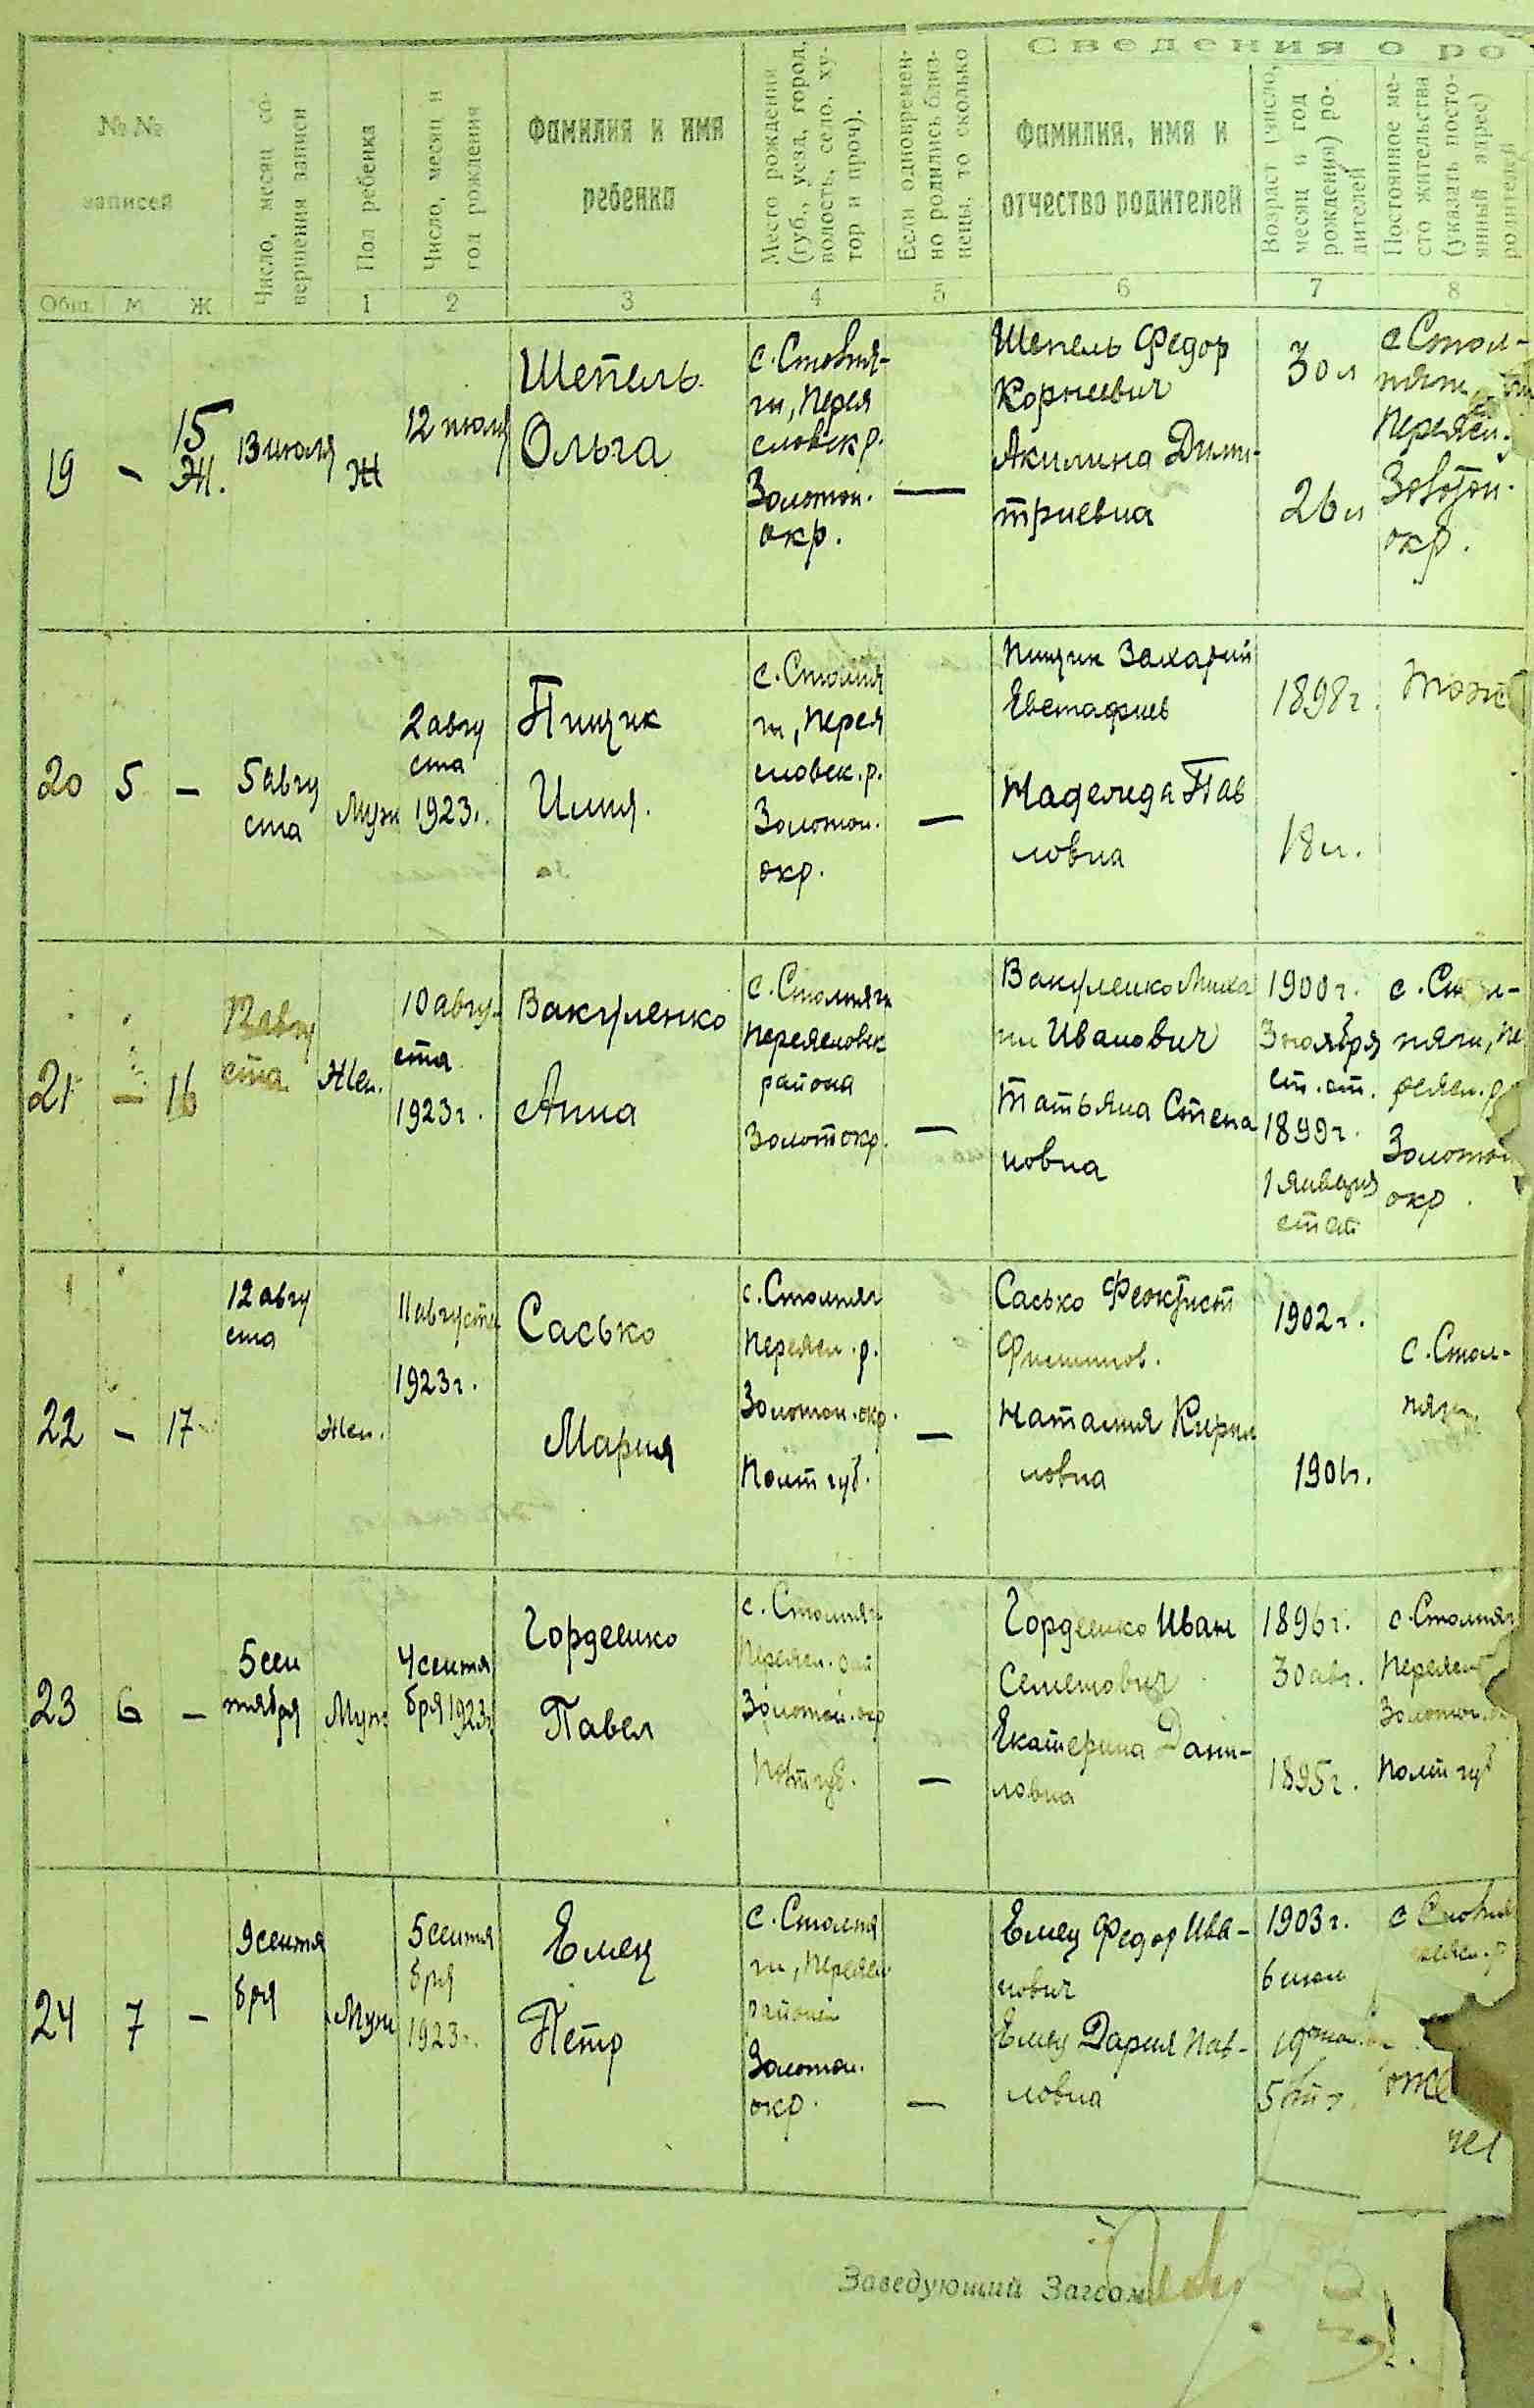 Сведения о ро
№ №
записей
Число, месяц со-
вершения записи
Пол ребенка
Число, месяц и
год рождения
Фамилия и имя
ребенка
Место рождения
(губ., уезд, город,
волость, село, ху-
тор и проч).
Если одновремен-
но родились близ-
нецы, то сколько
Фамилия, имя и
отчество родителей
Возраст (число,
месяц и год
рождения) ро-
дителей
Постоянное ме-
сто жительства
(указать посто-
янный адрес)
родителей
Общ. М Ж 1 2 3 4 5 6 7 8
19 — 15
Ж.
13 июля
Ж
12 июля
Шепель
Ольга
ги, Перея
словск р.
Золотон.
окр.
—
Шепель Федор
Корнеевич
Акилина Дими-
триевна
30 л
26 л
Переясл.
Золотон.
окр.
20 5 —
5 авгу
ста
Муж
2 авгу
ста
1923г.
Пищик
Илия.
с. Столпя
ги, Перея
словск. р.
Золотон.
окр.
—
Пищик Захарий
Евстафиев
Надежда Пав
ловна
1898 г.
18 л.
тоже
21 — 16
12 авгу
ста
Жен.
10 авгу-
ста
1923 г.
Вакуленко
Анна
с. Столпяги
Переясловск
района
Золот окр.
—
Вакуленко Миха
ил Иванович
Татьяна Степа
новна
1900 г.
3 ноября
ст. ст.
1899 г.
1 января
ст ст
с. Стол-
пяги, Пе
реясл. р
Золотон
окр.
22 — 17
12 авгу
ста
Жен.
11 августа
1923 г.
Сасько
Мария
с. Столпяг
Переясл. р.
Золотон. окр.
Полт губ.
—
Сасько Феоктист
Филиппов.
Наталия Кирил
ловна
1902 г.
1901г.
с. Стол-
пяги
23 6 —
5 сен
тября
Муж
4 сентя
бря 1923г
Гордеенко
Павел
с. Столпяг
Переясл. рай
Золотон. окр
Полт губ.
—
Гордеенко Иван
Семенович
Екатерина Дани-
ловна
1896 г.
30 авг.
1895 г.
с. Столпяг
Переясл
Золотон.
Полт губ
24 7 —
9 сентя
бря
Муж
5 сентя
бря
1923г.
Емец
Петр
с. Столпя
ги, Переясл
района
Золотон.
окр.
—
Емец Федор Ива-
нович
Емец Дария Пав-
ловна
1903 г.
6 июл
Заведующий Загсом